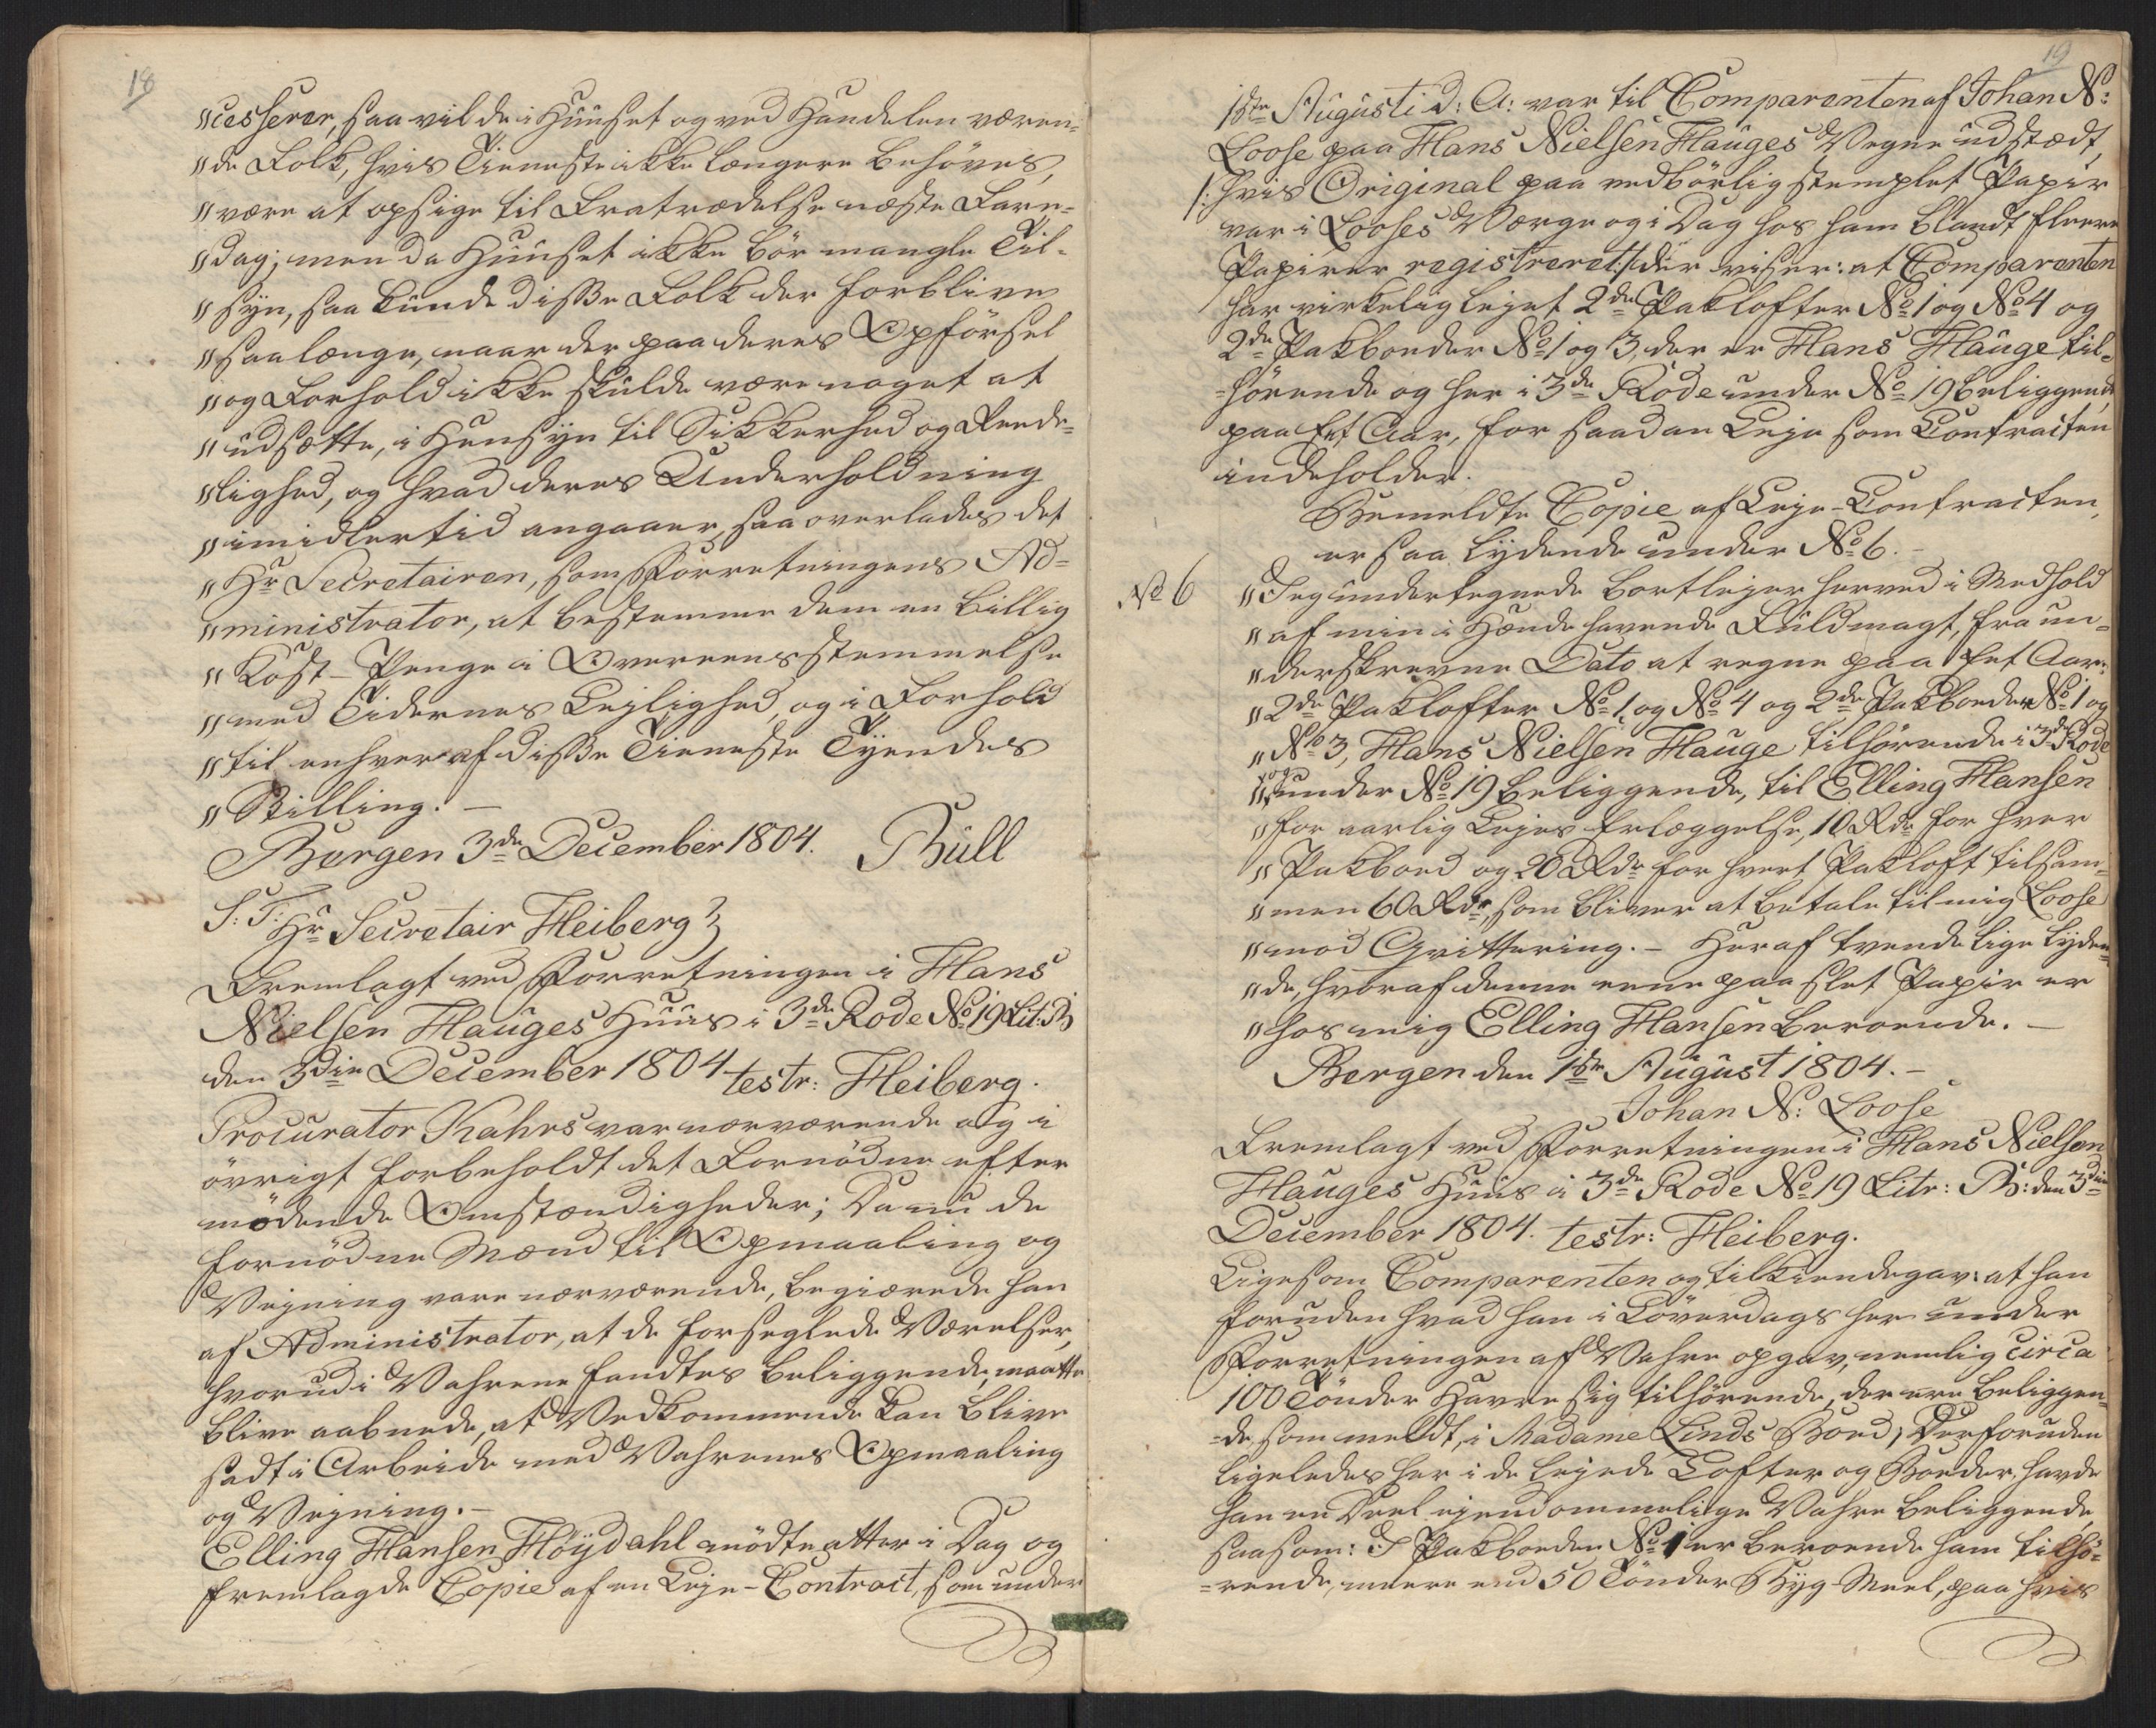 18
"cesserer, saa vil de i Huuset og ved Handelen væren-
"de Folk, hvis Tieneste ikke længere behöves,
"være at opsige til Fratrædelse næste Fare-
"dag; men da Huuset ikke bör mangle Til-
"syn, saa kunde disse Folk der forblive
"saalænge, naar der paa deres Opförsel
"og Forhold ikke skulde være noget at
"udsætte, i Hensyn til Sikkerhed og Reede-
"lighed, og hvad deres Underholdning
"imidlertid angaaer, saa overlades det
"Hr Secretairen, som Forretningens Ad=
"ministrator, at bestemme dem en billig
"Kost-Penge i Overeensstemmelse
"med Tidernes Lejlighed, og i Forhold
"til enhver af disse Tieneste Tyendes
"Stilling. –
Bergen 3de December 1804. Büll
S: T: Hr Secretair Heiberg
Fremlagt ved Forretningen i Hans
Nielsen Hauges Huus i 3de Rode No 19 Lit: B
den 3die December 1804 testr: Heiberg.
Procurator Kahrs var nærværende og i
övrigt forbeholdt det Fornödne efter
mödende Omstændigheder; Da nu de
fornödne Mænd til Opmaaling og
Vejning vare nærværende, begiærede han
af Administrator, at de forseglede Værelser,
hvorudi Vahrene fandtes beliggende, maatte
blive aabnede, at Vedkommende kan blive
sadt i Arbeide med Vahrenes Opmaaling
og Vejning. –
Elling Hansen Höÿdahl mödte atter i Dag og
fremlagde Copie af en Leje-Contract, som under
19
1ste Augusti d: A: var til Comparenten af Johan N:
Loose paa Hans Nielsen Hauges Vegne udstædt,
/: hvis Original paa vedbörlig stemplet Papir
var i Looses Værge og i Dag hos ham blandt fleere
Papirer registreret :/ der viser: at Comparenten
har virkelig lejet 2de Paklofter No 1 og No 4 og
2de Pakboeder No 1 og 3, der er Hans Hauge til-
-hörende og her i 3de Rode under No 19 beliggende
paa Eet Aar, for saadan Leje som Contracten
indeholder.
Bemeldte Copie af Leje-Contracten,
er saa lydende under No 6. –
No 6
"Jeg undertegnede bortlejer herved i Medhold
"af min i Hænde havende Fuldmagt, fra un-
"derskrevne Dato at regne paa Eet Aar:
"2de Paklofter No 1 og No 4 og 2de Pakboeder No 1 og
"No 3, Hans Nielsen Hauge tilhörende i 3de Rode
"under No 19 beliggende, til Elling Hansen
"for aarlig Lejes Erlæggelse, 10 Rdr for hver
"Pakboed og 20 Rdr for hvert Pakloft tilsam-
"men 60 Rdr, som bliver at betale til mig Loose
"mod Qvittering. – Heraf tvende lige lyden-
"de, hvoraf denne eene paa slet Papir er
"hos mig Elling Hansen beroende. –
Bergen den 1ste August 1804. –
Johan N: Loose
Fremlagt ved Forretningen i Hans Nielsen
Hauges Huus i 3de Rode No 19 Litr: B: den 3die
December 1804. testr: Heiberg.
Ligesom Comparenten og tilkiendegav: at han
foruden hvad han i Löverdags her under
Forretningen af Vahre opgav, nemlig circa
100 Tönder Havre sig tilhörende, der ere beliggen-
-de, som meldt, i Madame Linds Boed; Derforuden
ligeledes her i de lejede Lofter og Boeder, havde
han en Deel ejendommelige Vahre beliggende
saasom: I Pakboeden No 1 er beroende ham tilhö-
-rende, meere end 50 Tönder Byg-Meel, paa hvis